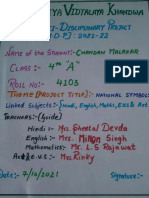 YA VIDYALAYA KHANDWA
TI-DISCIPLINARY PROJECT
D.P.) : 2021-22
Name of the Student:- CHANDAN MALAKAR
CLASS:- 4th "A"
ROLL NO:- 4103
THEME [PROJECT TITLE]:- NATIONAL SYMBOLS
Linked Subjects:- [Hindi, English, Maths, EVS & Art
TEACHERS:- (guide)
Hindi :- Mrs. Sheetal Devda
English:- Mrs. Singh
Mathematics:- Mr. L.S Rajawat
Art & E.V.S:- Mrs. Rinky
Date:- 7/10/2021 Signature:-